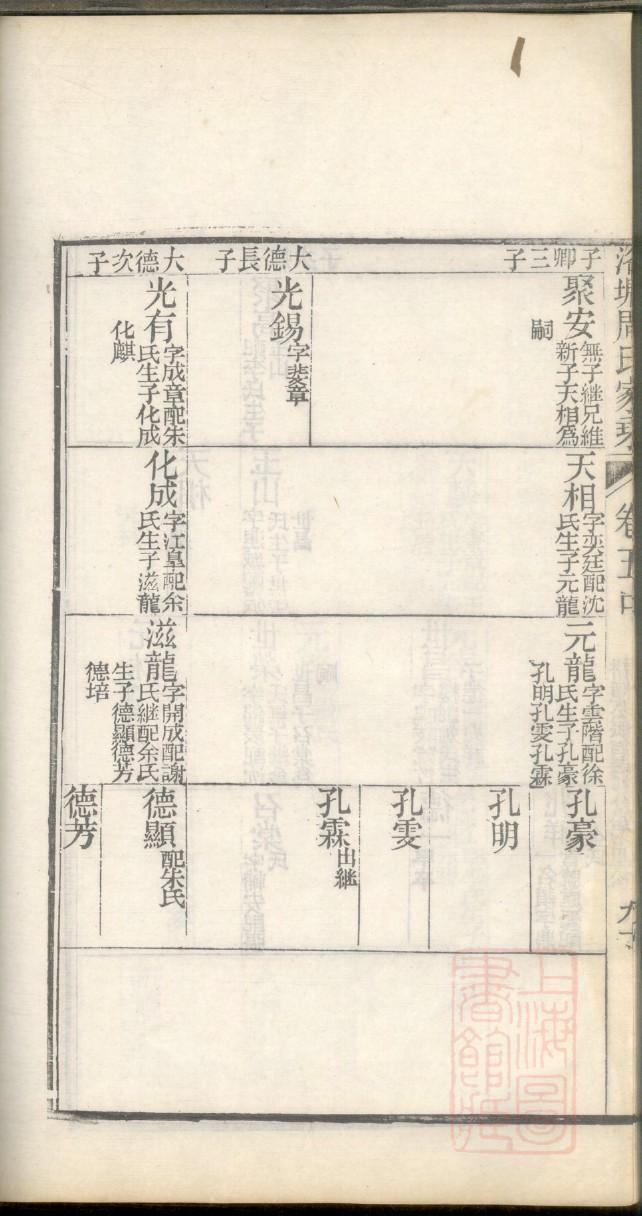 洛塘周氏家乘
卷五中
子卿三子
聚安
無子繼兄維
新子天相爲
嗣
大德長子
光錫
字斐章
大德次子
光有
字成章配朱
氏生子化成
化麒
天相
字奕廷配沈
氏生子元龍
化成
字江臯配余
氏生子滋龍
元龍
字雲階配徐
氏生子孔豪
孔明孔雯孔霖
滋龍
字開成配謝
氏繼配余氏
生子德顯德芳
德培
孔豪
孔明
孔雯
孔霖
出繼
德顯
配朱氏
德芳
上海圖
書館藏